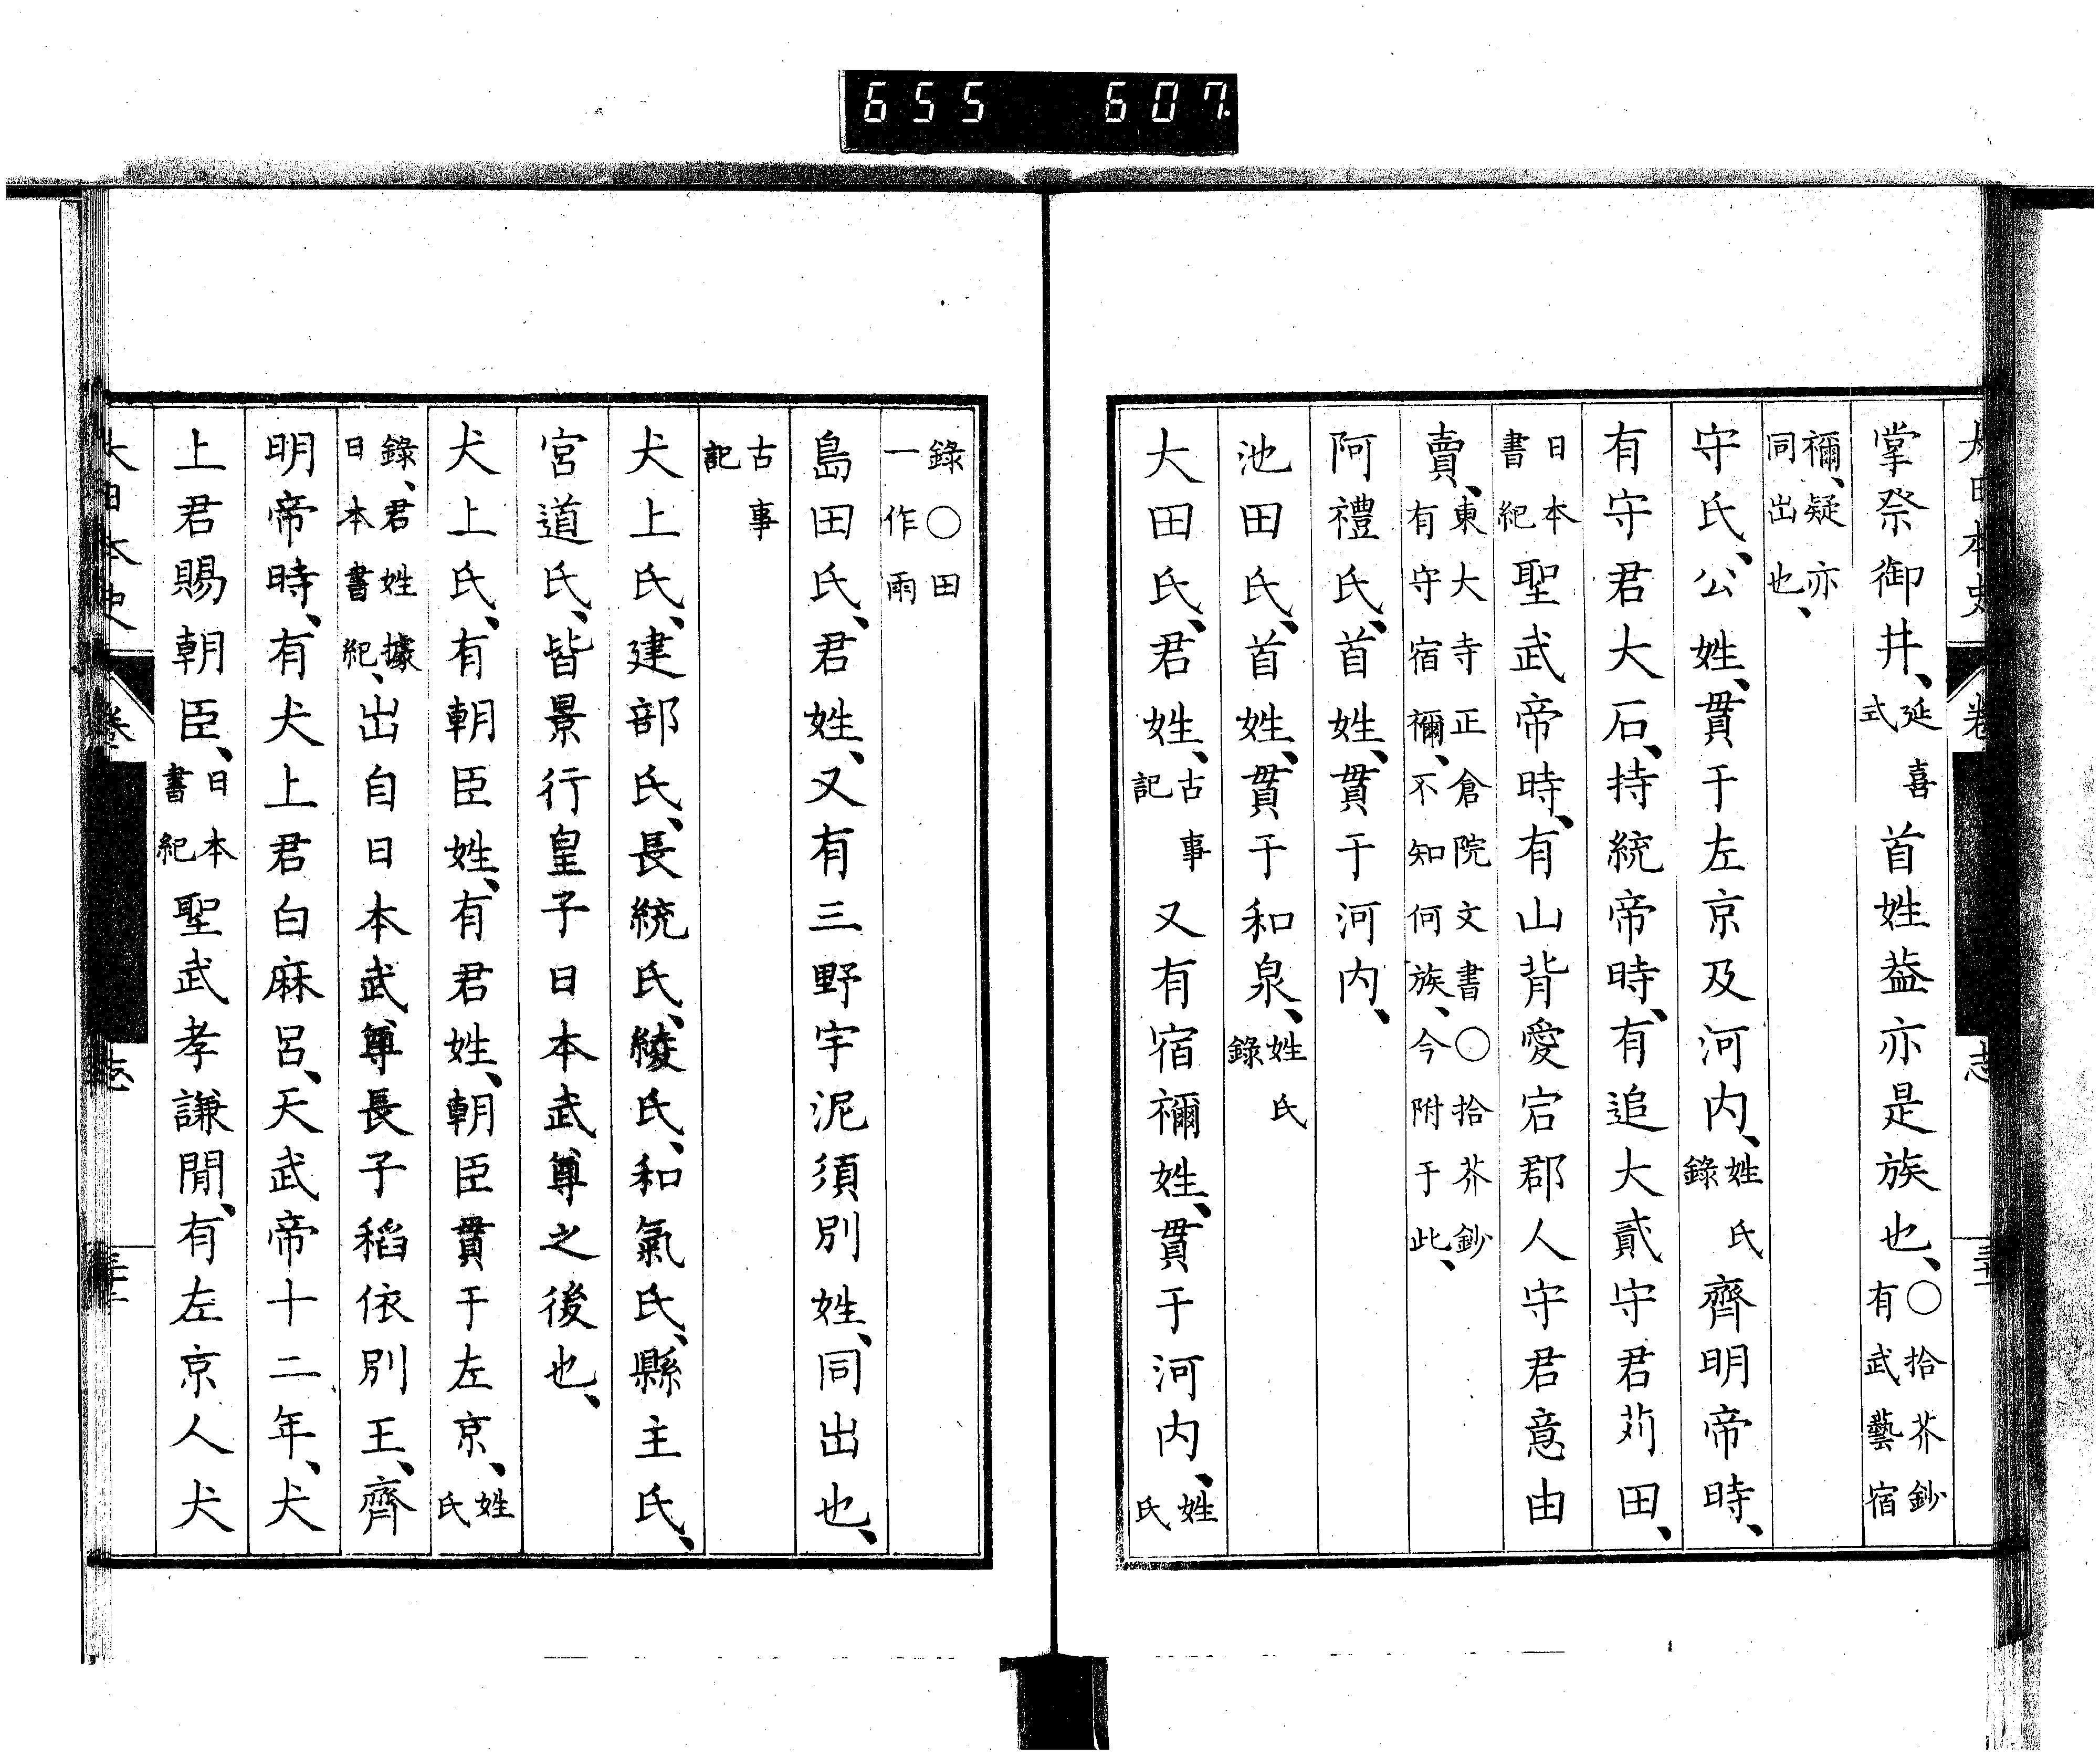 655 607.
掌祭御井、延喜式首姓葢亦是族也、○拾芥鈔有武藝宿
禰、疑亦同出也、
守氏、公姓、貫于左京及河内、姓氏錄齊明帝時、
有守君大石、持統帝時、有追大貳守君苅田、
日本書紀聖武帝時、有山背愛宕郡人守君意由
賣、東大寺正倉院文書○拾芥鈔有守宿禰、不知何族、今附于此、
阿禮氏、首姓、貫于河内、
池田氏、首姓、貫于和泉、姓氏錄
大田氏、君姓、古事記又有宿禰姓、貫于河内、姓氏
錄○田一作雨
島田氏、君姓、又有三野宇泥須別姓、同出也、
古事記
犬上氏、建部氏、長統氏、綾氏、和氣氏、縣主氏、
宮道氏、皆景行皇子日本武尊之後也、
犬上氏、有朝臣姓、有君姓、朝臣貫于左京、姓氏
錄、君姓據日本書紀、出自日本武尊長子稻依別王、齊
明帝時、有犬上君白麻呂、天武帝十二年、犬
上君賜朝臣、日本書紀聖武孝謙閒、有左京人犬
大日本史 卷 志